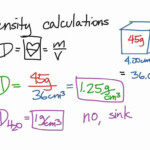 ensity calculations
D = = m/V
45g
4.00cm
D = 45g/36cm³ = 1.25g/cm³
36.0
D H₂O = 1g/cm³ no, sink